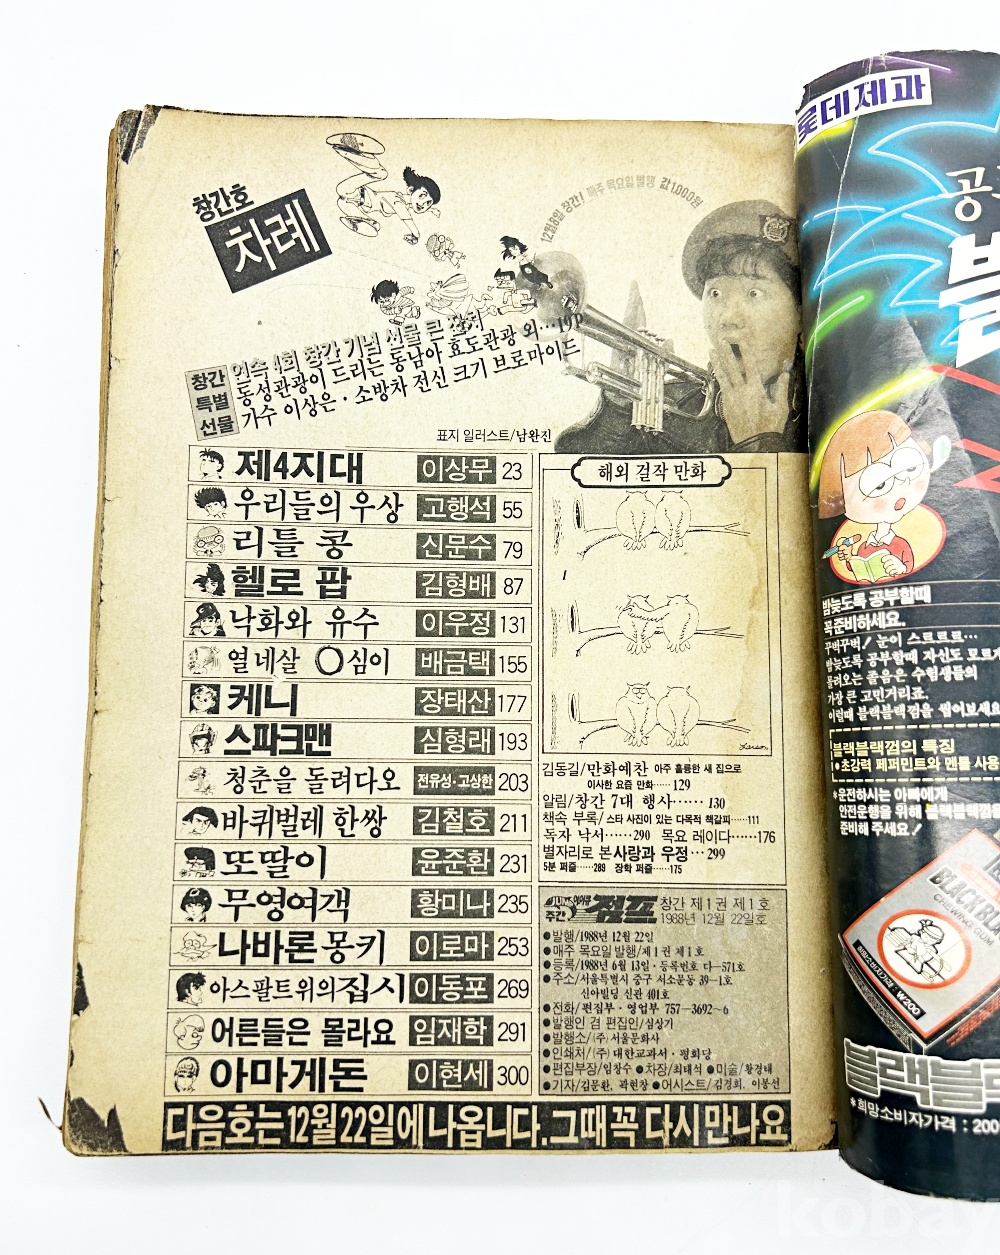 창간호
차례
12월8일 창간! 매주 목요일 발행 값1,000원
창간
특별
선물
연속 4회 창간 기념 선물 큰 잔치
동성관광이 드리는 동남아 효도관광 외…19p
가수 이상은·소방차 전신 크기 브로마이드
표지 일러스트/남완진
제4지대 이상무 23
우리들의 우상 고행석 55
리틀 콩 신문수 79
헬로 팝 김형배 87
낙화와 유수 이우정 131
열네살 ○심이 배금택 155
케니 장태산 177
스파크맨 심형래 193
청춘을 돌려다오 전유성·고상한 203
바퀴벌레 한쌍 김철호 211
또딸이 윤준환 231
무영여객 황미나 235
나바론 몽키 이로마 253
아스팔트위의 집시 이동포 269
어른들은 몰라요 임재학 291
아마게돈 이현세 300
해외 걸작 만화
Larson
김동길/만화예찬 아주 훌륭한 새 집으로
이사한 요즘 만화……129
알림/창간 7대 행사……130
책속 부록/스타 사진이 있는 다목적 책갈피……111
독자 낙서……290 목요 레이다……176
별자리로 본 사랑과 우정…299
5분 퍼즐……289 장학 퍼즐……175
주간 점프 창간 제1권 제1호
1988년 12월 22일호
●발행/1988년 12월 22일
●매주 목요일 발행/제1권 제1호
●등록/1988년 6월 13일·등록번호 다-571호
●주소/서울특별시 중구 서소문동 39-1호
신아빌딩 신관 401호
●전화/편집부·영업부 757-3692~6
●발행인 겸 편집인/심상기
●발행소/(주)서울문화사
●인쇄처/(주)대한교과서·평화당
●편집부장/임창수 ●차장/최태석 ●미술/황경태
●기자/김문환, 곽현창 ●어시스트/김경희, 이봉선
다음호는 12월 22일에 나옵니다. 그때 꼭 다시 만나요
롯데제과
공
블
밤늦도록 공부할때
꼭 준비하세요.
꾸벅꾸벅! 눈이 스트르트…
밤늦도록 공부할때 자신도 모르게
몰려오는 졸음은 수험생들의
가장 큰 고민거리죠.
이럴때 블랙블랙껌을 씹어보세요
블랙블랙껌의 특징
●초강력 페퍼민트와 멘톨 사용
*운전하시는 아빠에게
안전운행을 위해 블랙블랙껌
준비해 주세요!
CHEWING GUM
희망소비자가격: ₩200
블랙블
*희망소비자가격 : 200
kobay